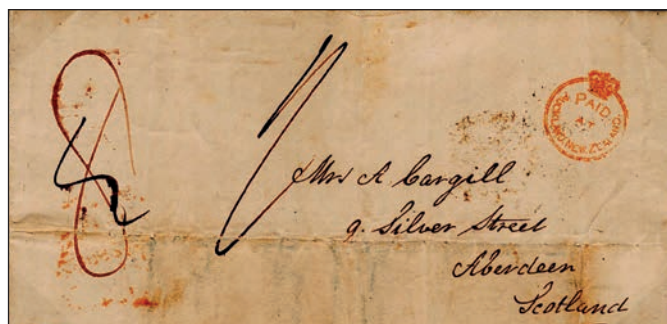 8
PAID
AT
AUCKLAND NEW ZEALAND
Mrs A Cargill
9. Silver Street
Aberdeen
Scotland